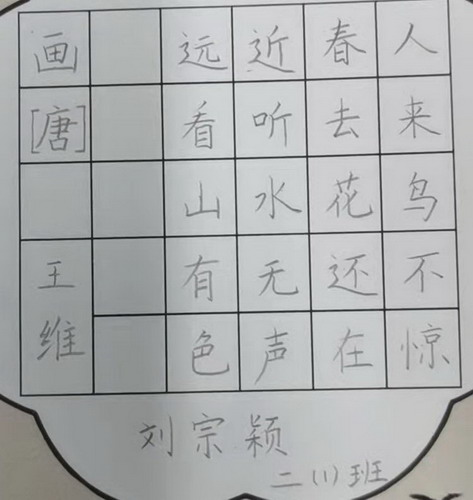 画
[唐]
王维
远看山有色
近听水无声
春去花还在
人来鸟不惊
刘宗颖
二(1)班